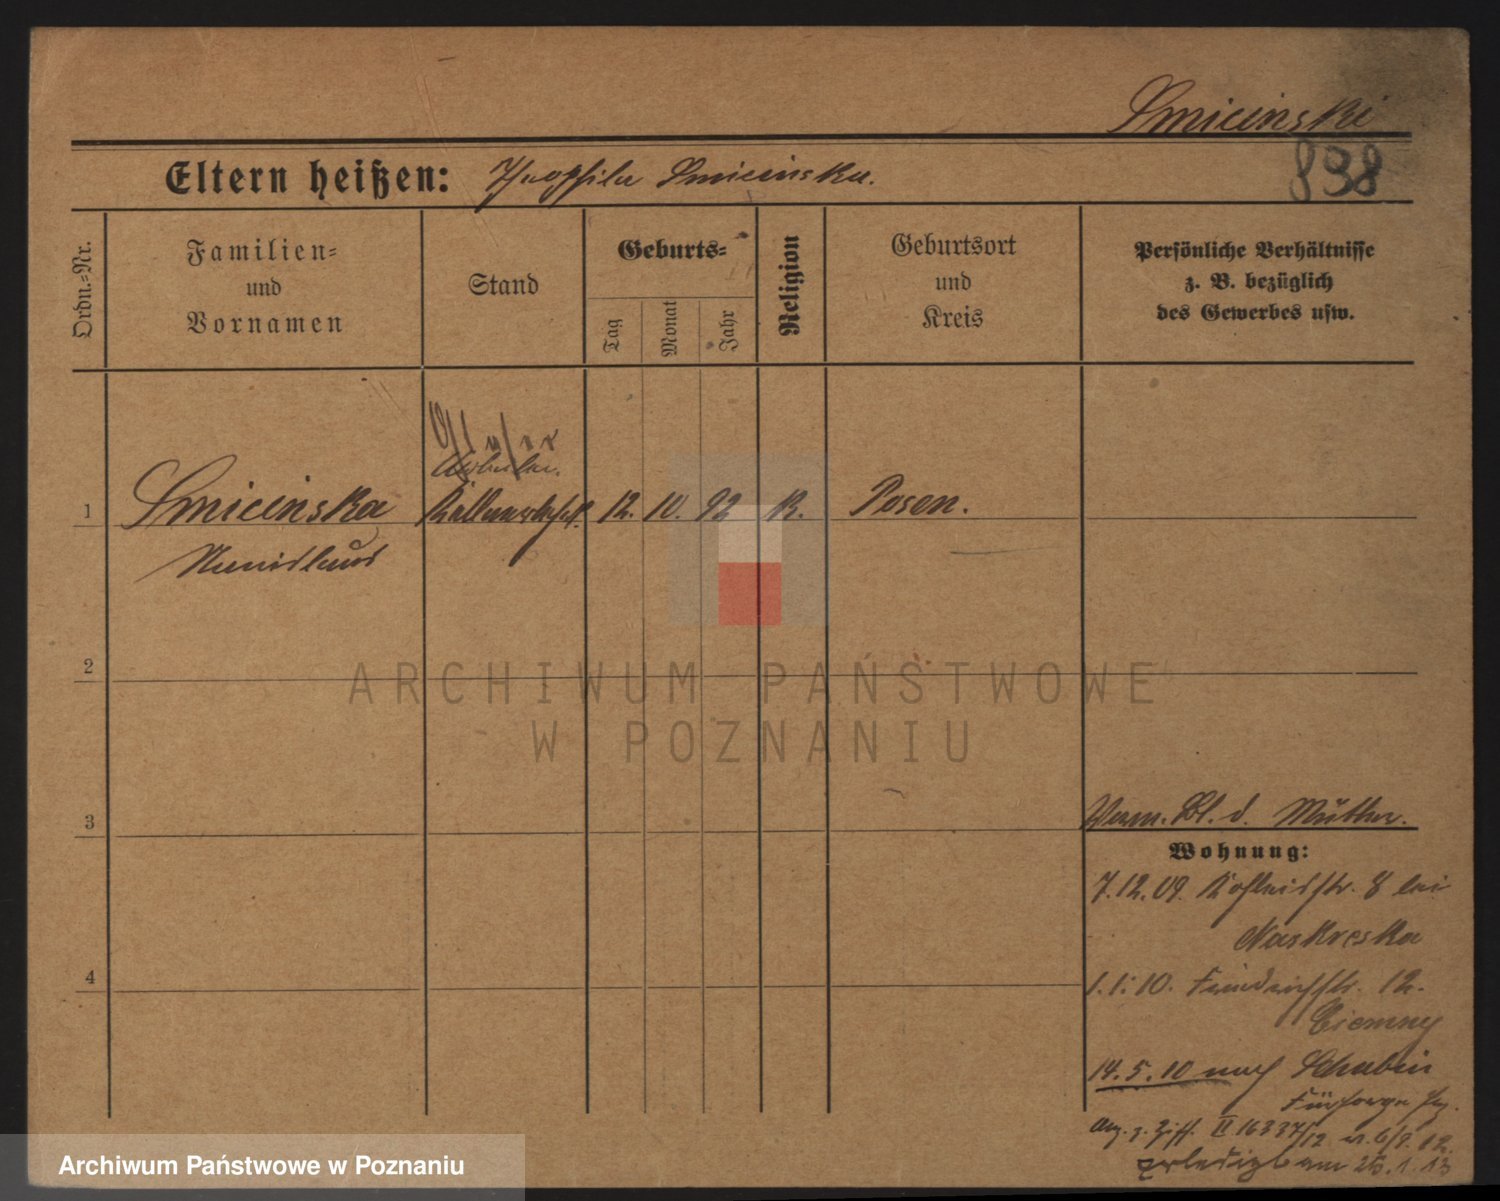 Smicinski
838
Eltern heißen: Theophila Smicinska.
Ordn.-Nr.
Familien-
und
Vornamen
Stand
Geburts-
Tag
Monat
Jahr
Religion
Geburtsort
und
Kreis
Persönliche Verhältnisse
z. B. bezüglich
des Gewerbes usw.
1
Smicinska
Arbeiter
Kellnerlehrl. 12. 10. 92 K. Posen.
2
3
4
Verm. Bl. d. Mutter.
Wohnung:
7.12.09. 8 bei
Naskreska
1.1.10. Friedrichstr. 12.
Ciemny
14.5.10 nach Schubin
Fürsorge
Anz. z. Ziff. II 16337/12 v. 6/8. 12.
erledigt am 25.1.13
ARCHIWUM PAŃSTWOWE
W POZNANIU
Archiwum Państwowe w Poznaniu